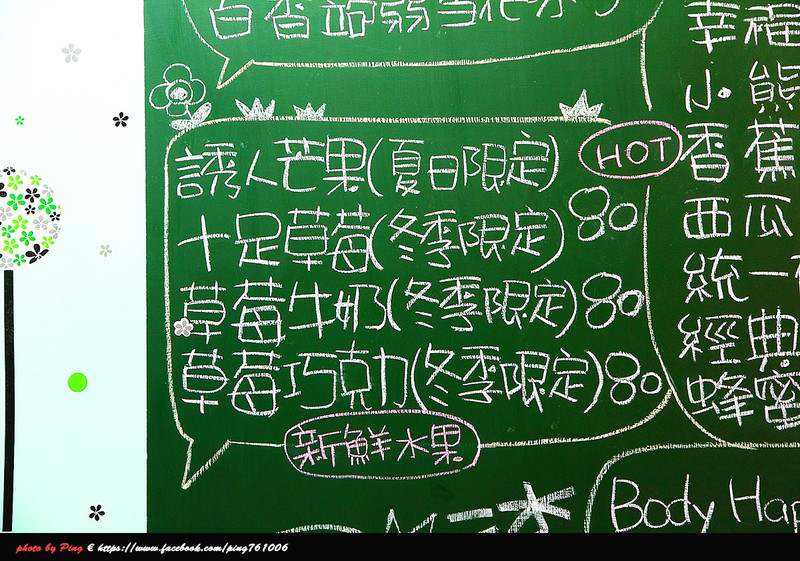 百香
幸福
小熊
誘人芒果(夏日限定)
HOT
香蕉
十足草莓(冬季限定) 80
西瓜
草莓牛奶(冬季限定) 80
統一
草莓巧克力(冬季限定) 80
經典
蜂蜜
新鮮水果
Body Hap
photo by Ping © https://www.facebook.com/ping761006